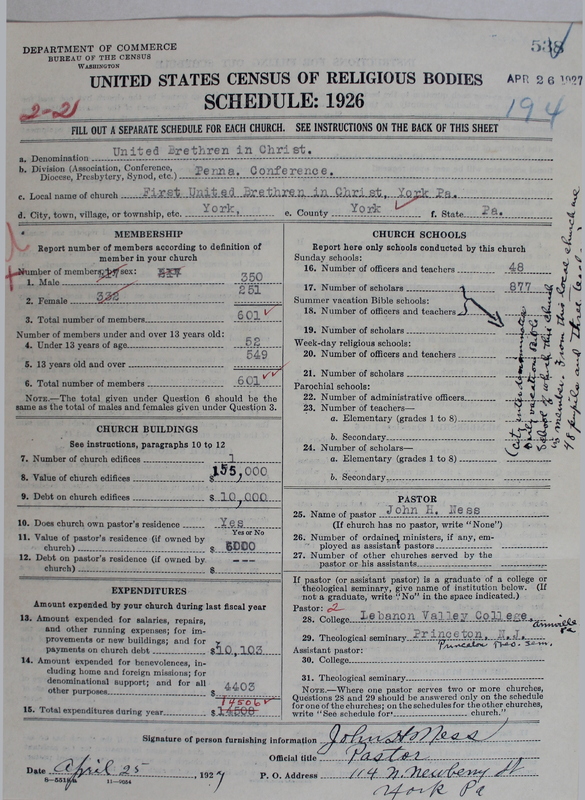 DEPARTMENT OF COMMERCE
BUREAU OF THE CENSUS
WASHINGTON
538
APR 26 1927
UNITED STATES CENSUS OF RELIGIOUS BODIES
SCHEDULE: 1926
2-21
194
FILL OUT A SEPARATE SCHEDULE FOR EACH CHURCH. SEE INSTRUCTIONS ON THE BACK OF THIS SHEET
a. Denomination United Brethren in Christ.
b. Division (Association, Conference, Diocese, Presbytery, Synod, etc.) Penna. Conference.
c. Local name of church First United Brethren in Christ, York Pa.
d. City, town, village, or township, etc. York, e. County York f. State Pa.
MEMBERSHIP
Report number of members according to definition of member in your church
Number of members by sex:
1. Male 350
2. Female 251
3. Total number of members 601
Number of members under and over 13 years old:
4. Under 13 years of age 52
5. 13 years old and over 549
6. Total number of members 601
NOTE.—The total given under Question 6 should be the same as the total of males and females given under Question 3.
CHURCH BUILDINGS
See instructions, paragraphs 10 to 12
7. Number of church edifices 1
8. Value of church edifices $155,000
9. Debt on church edifices $10,000
10. Does church own pastor's residence Yes
Yes or No
11. Value of pastor's residence (if owned by church) $
12. Debt on pastor's residence (if owned by church) $ ---
EXPENDITURES
Amount expended by your church during last fiscal year
13. Amount expended for salaries, repairs, and other running expenses; for improvements or new buildings; and for payments on church debt $10,103
14. Amount expended for benevolences, including home and foreign missions; for denominational support; and for all other purposes 4403
14506
15. Total expenditures during year $
CHURCH SCHOOLS
Report here only schools conducted by this church
Sunday schools:
16. Number of officers and teachers 48
17. Number of scholars 877
Summer vacation Bible schools:
18. Number of officers and teachers
19. Number of scholars
Week-day religious schools:
20. Number of officers and teachers
21. Number of scholars
Parochial schools:
22. Number of administrative officers
23. Number of teachers—
a. Elementary (grades 1 to 8)
b. Secondary
24. Number of scholars—
a. Elementary (grades 1 to 8)
b. Secondary
PASTOR
25. Name of pastor John H. Ness
(If church has no pastor, write "None")
26. Number of ordained ministers, if any, employed as assistant pastors
27. Number of other churches served by the pastor or his assistants
If pastor (or assistant pastor) is a graduate of a college or theological seminary, give name of institution below. (If not a graduate, write "No" in the space indicated.)
Pastor: 2
28. College Lebanon Valley College, Annville Pa
29. Theological seminary Princeton, N.J.
Princeton Theo. Sem.
Assistant pastor:
30. College
31. Theological seminary
NOTE.—Where one pastor serves two or more churches, Questions 28 and 29 should be answered only on the schedule for one of the churches; on the schedules for the other churches, write "See schedule for church."
Signature of person furnishing information John H Ness
Official title Pastor
Date April 25, 1927 P. O. Address 114 N. Newberry St
York Pa
11—9054